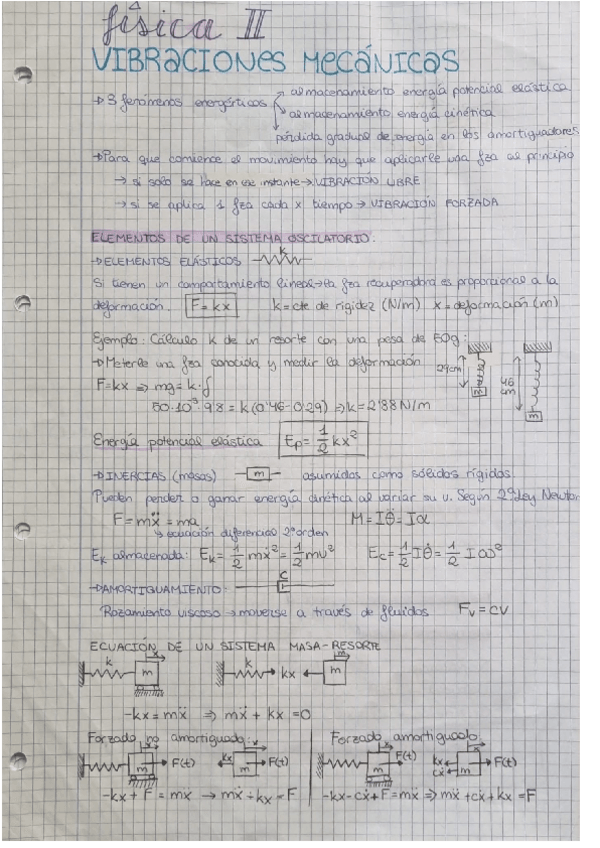 física II
VIBRACIONES MECÁNICAS
→ 3 fenómenos energéticos → almacenamiento energía potencial elástica
→ almacenamiento energía cinética
→ pérdida gradual de energía en los amortiguadores
→ Para que comience el movimiento hay que aplicarle una fza al principio
→ si solo se hace en ese instante → VIBRACIÓN LIBRE
→ si se aplica 1 fza cada x tiempo → VIBRACIÓN FORZADA
ELEMENTOS DE UN SISTEMA OSCILATORIO:
→ ELEMENTOS ELÁSTICOS k
Si tienen un comportamiento lineal → la fza recuperadora es proporcional a la
deformación. F = kx k = cte de rigidez (N/m) x = deformación (m)
Ejemplo: Cálculo k de un resorte con una pesa de 50g:
→ Meterle una fza conocida y medir la deformación 29cm 46 cm
F = kx ⇒ mg = k · f m m
50·10⁻³·9'8 = k (0'46 - 0'29) ⇒ k = 2'88 N/m
Energía potencial elástica Ep = 1/2 kx²
→ INERCIAS (masas) m asumidos como sólidos rígidos
Pueden perder o ganar energía cinética al variar su v. Según 2ª Ley Newton
F = mẍ = ma M = Iθ̈ = Iα
↳ ecuación diferencial 2º orden
Ek almacenada: Ek = 1/2 mẋ² = 1/2 mv² Ec = 1/2 Iθ̇ = 1/2 Iω²
→ AMORTIGUAMIENTO: c
Rozamiento viscoso → moverse a través de fluidos Fv = cv
ECUACIÓN DE UN SISTEMA MASA-RESORTE
k m x k kx m
-kx = mẍ ⇒ mẍ + kx = 0
Forzado no amortiguado: Forzado amortiguado
m x F(t) kx m F(t) m x F(t) kx cẋ m F(t)
-kx + F = mẍ → mẍ + kx = F -kx - cẋ + F = mẍ ⇒ mẍ + cẋ + kx = F